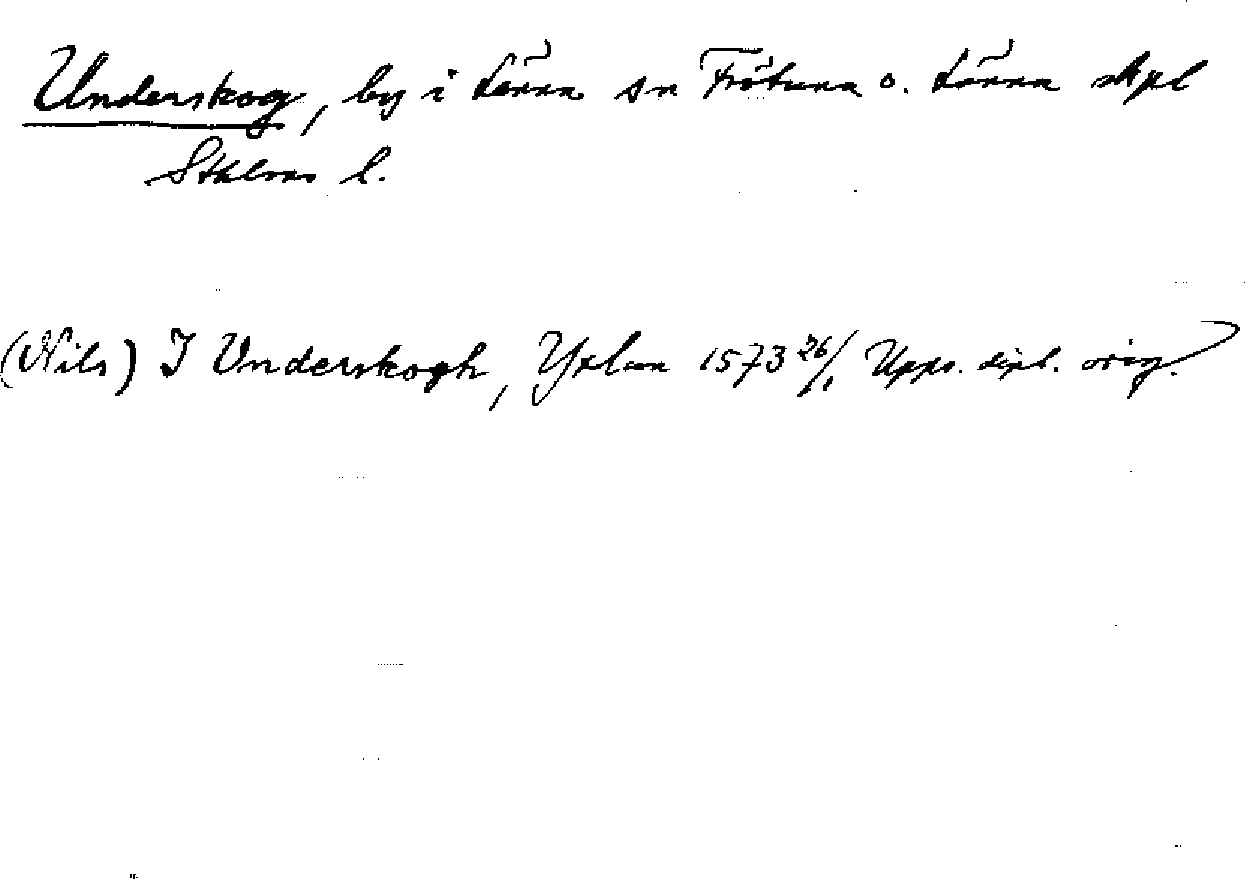 Underskog, by i Länna sn Frötuna o. Länna skpl
Sthlms l.
(Nils) I Vnderskogh, Yxlan 1573 26/1 Upps. dipl. orig.